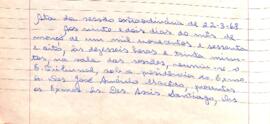 Ata da sessão extraordinária de 22-3-68.
Aos vinte e dois dias do mês de
março de um mil novecentos e sessenta
e oito, às dezesseis horas e trinta minu-
tos, na sala das sessões, reuniu-se o
Tribunal, sob a presidência do Exmo.
Sr. Des. José Américo Macêdo, presentes
os Exmos. Srs. Des. Assis Santiago, Des.